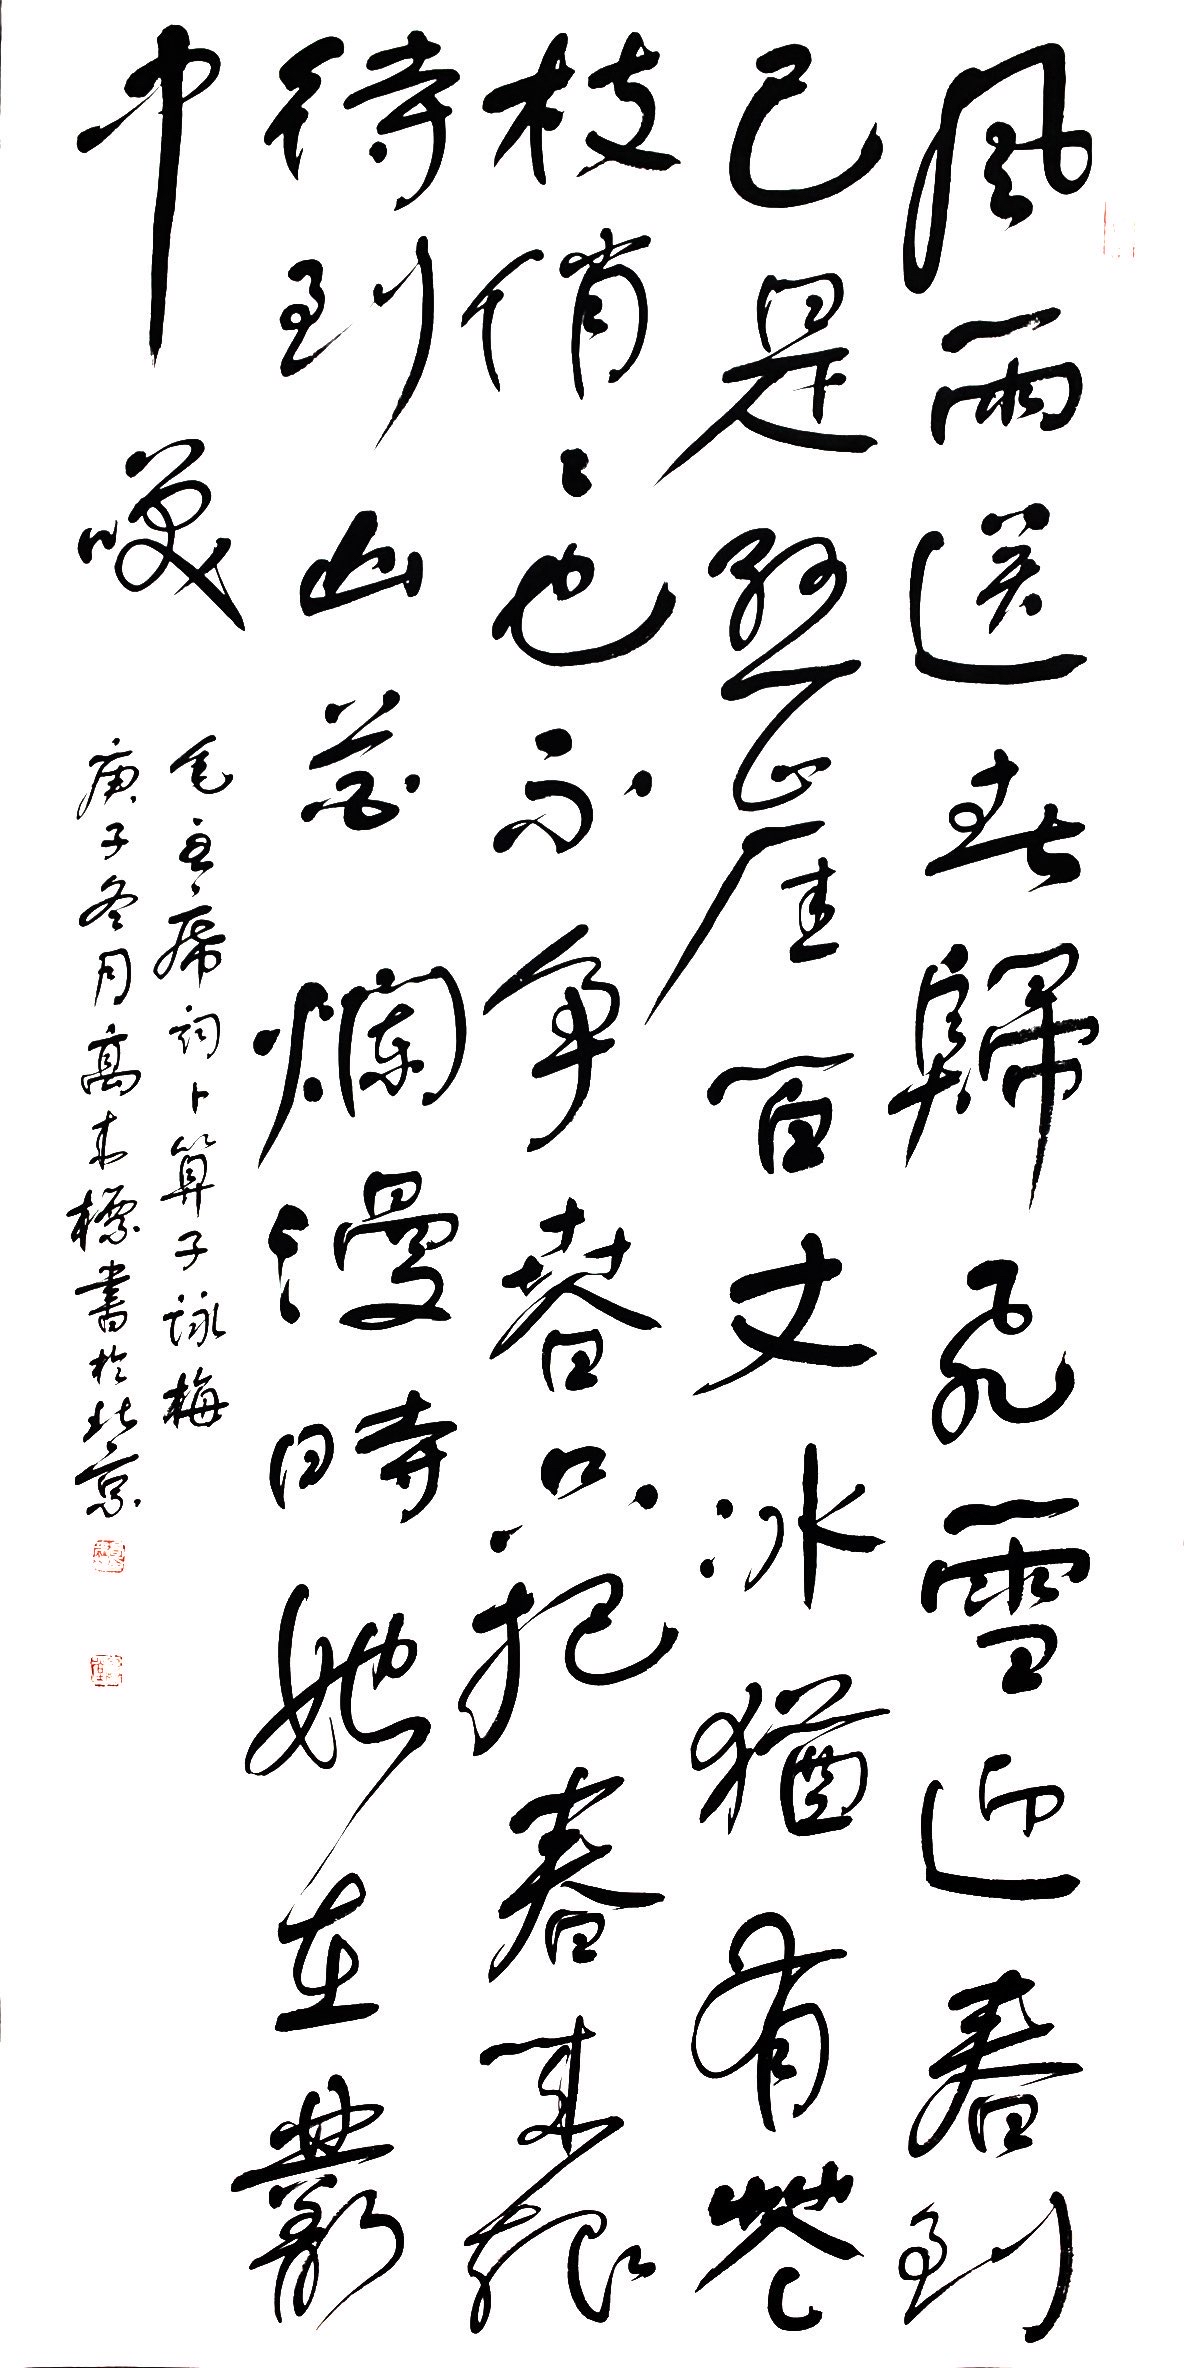 風雨送春歸飛雪迎春到
已是懸崖百丈冰猶有花
枝俏〻也不争春只把春来報
待到山花爛漫時她在叢
中咲
毛主席詞卜算子詠梅
庚子冬月高木標書於北京